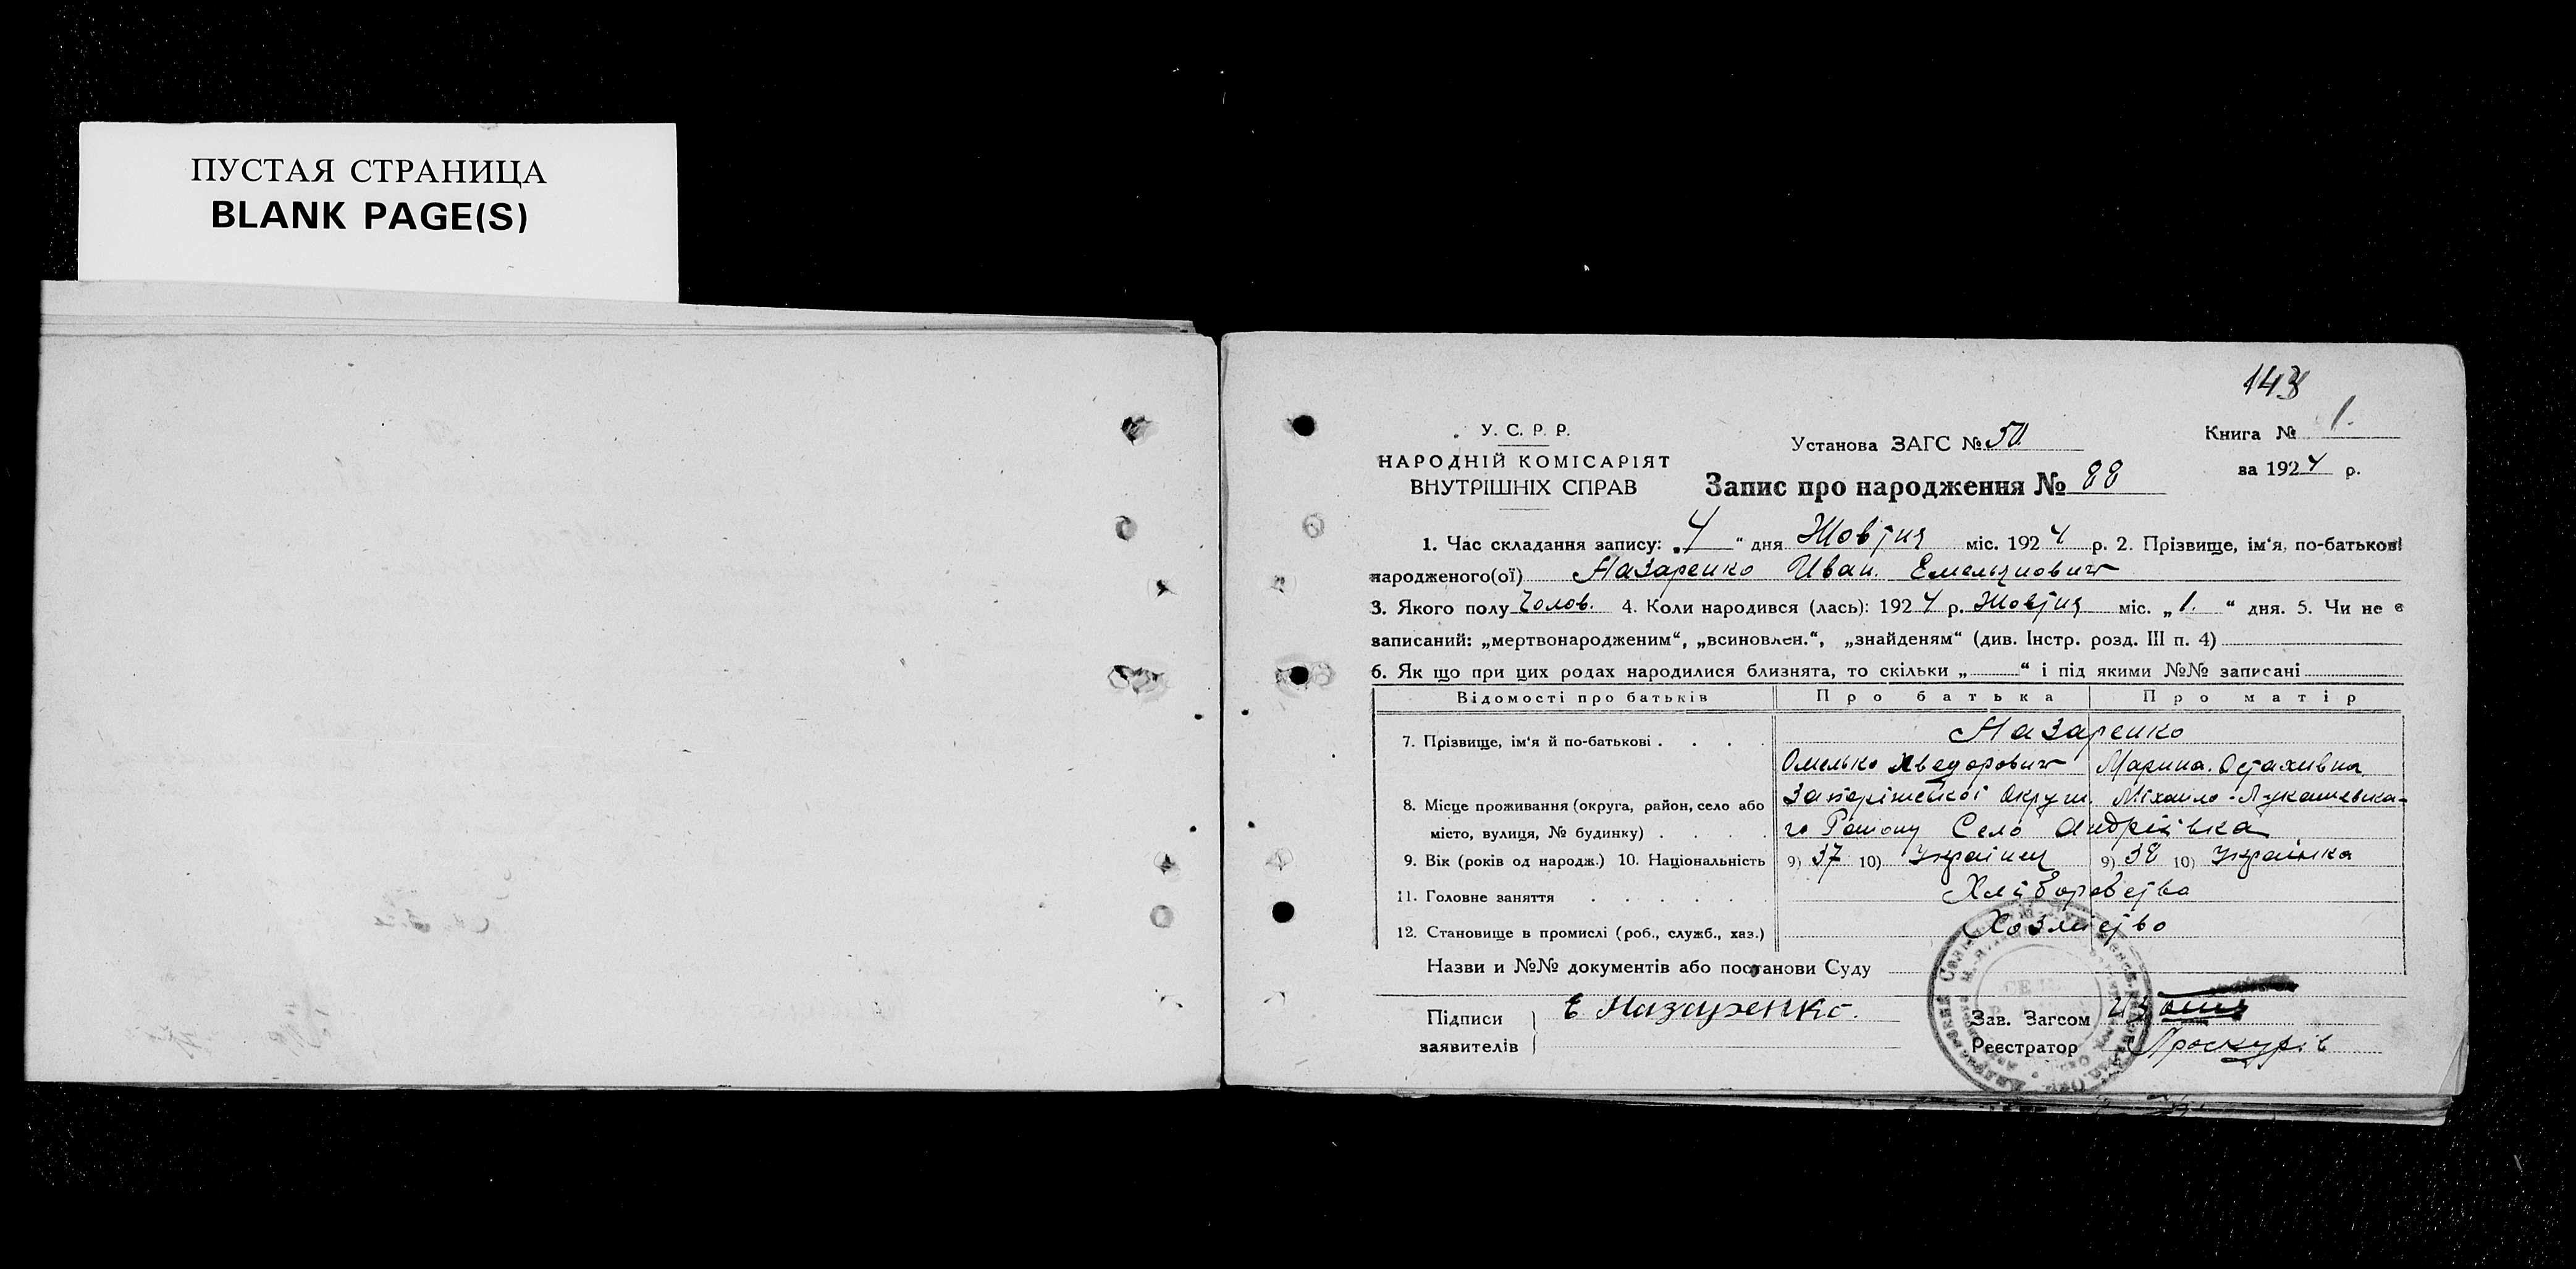 ПУСТАЯ СТРАНИЦА
BLANK PAGE(S)
143
У. С. Р. Р.
НАРОДНІЙ КОМІСАРІЯТ
ВНУТРІШНІХ СПРАВ
Установа ЗАГС № 50
Запис про народження № 88
Книга № 1.
за 1924 р.
1. Час складання запису: „4“ дня Жовтня міс. 1924 р. 2. Прізвище, ім‘я, по-батькові
народженого(ої) Назаренко Иван. Емельянович
3. Якого полу Чолов. 4. Коли народився (лась): 1924 р. Жовтня міс. „1.“ дня. 5. Чи не є
записаний: „мертвонародженим“, „всиновлен.“, „знайденям“ (див. Інстр. розд. III п. 4)
6. Як що при цих родах народилися близнята, то скільки „ “ і під якими №№ записані
Відомості про батьків Про батька Про матір
7. Прізвище, ім‘я й по-батькові . . . . Назаренко
Омелько Хведорович Марина. Остахивна
8. Місце проживання (округа, район, село або Запоріжської Округи. Міхайло-Лукашевска-
місто, вулиця, № будинку) . . . . го Району Село Андріївка
9. Вік (років од народж.) 10. Національність 9) 37 10) Українец 9) 38 10) Українка
11. Головне заняття . . . . . . Хліборобство
12. Становище в промислі (роб., служб., хаз.)
Назви и №№ документів або постанови Суду
Підписи
заявителів
Е Назаренко.
Зав. Загсом
Реєстратор